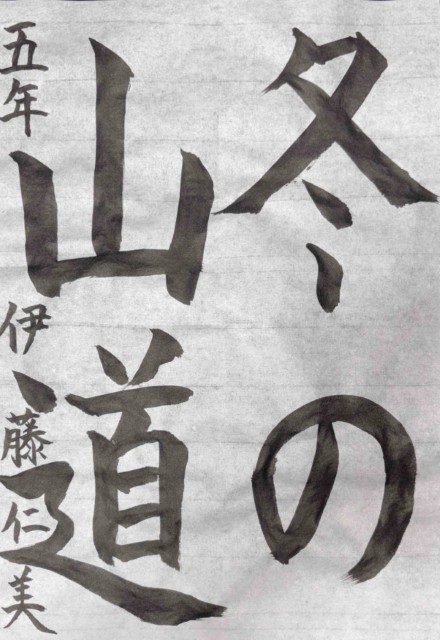 冬の
山道
五年 伊藤仁美